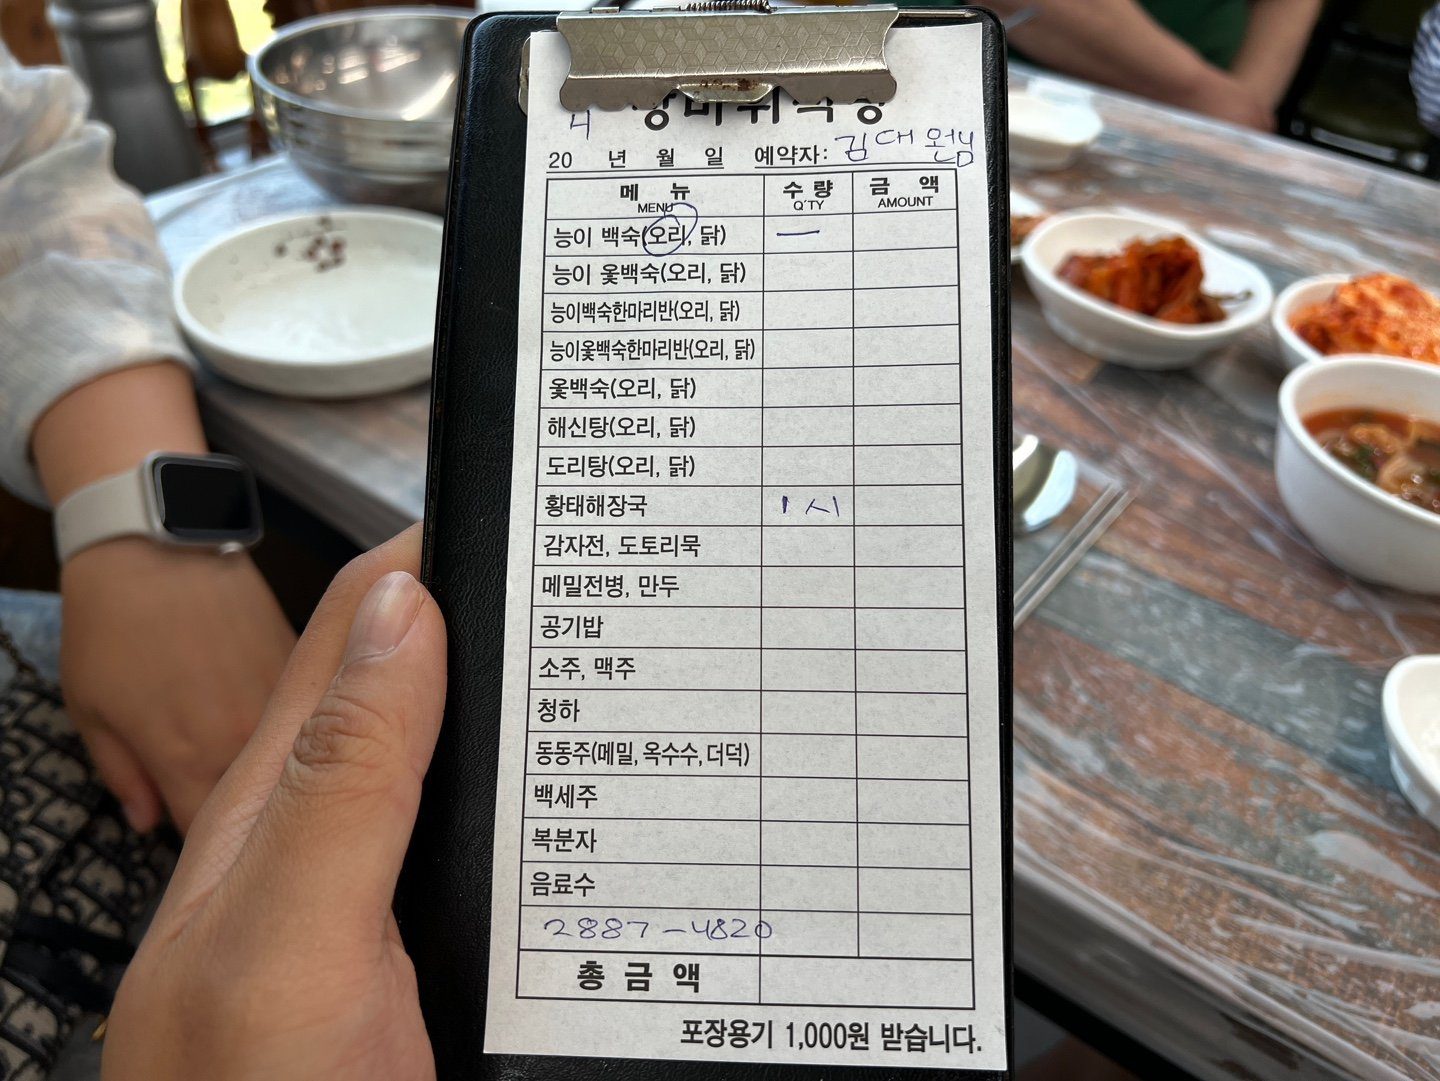 4
20 년 월 일 예약자: 김대원님
메 뉴 수 량 금 액
MENU Q'TY AMOUNT
능이 백숙(오리, 닭) 一
능이 옻백숙(오리, 닭)
능이백숙한마리반(오리, 닭)
능이옻백숙한마리반(오리, 닭)
옻백숙(오리, 닭)
해신탕(오리, 닭)
도리탕(오리, 닭)
황태해장국 1시
감자전, 도토리묵
메밀전병, 만두
공기밥
소주, 맥주
청하
동동주(메밀, 옥수수, 더덕)
백세주
복분자
음료수
2887-4820
총 금 액
포장용기 1,000원 받습니다.